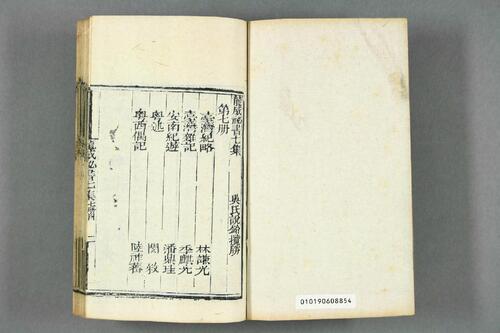 龍威秘書七集 吳氏說鈴攬勝
第七册
臺灣紀略 林謙光
臺灣雜記 季麒光
安南紀遊 潘鼎珪
粵述 閔敘
粵西偶記 陸祚蕃
010190608854